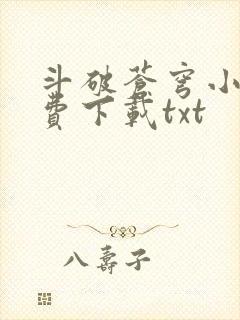 斗破苍穹小
费下载txt
八寿子